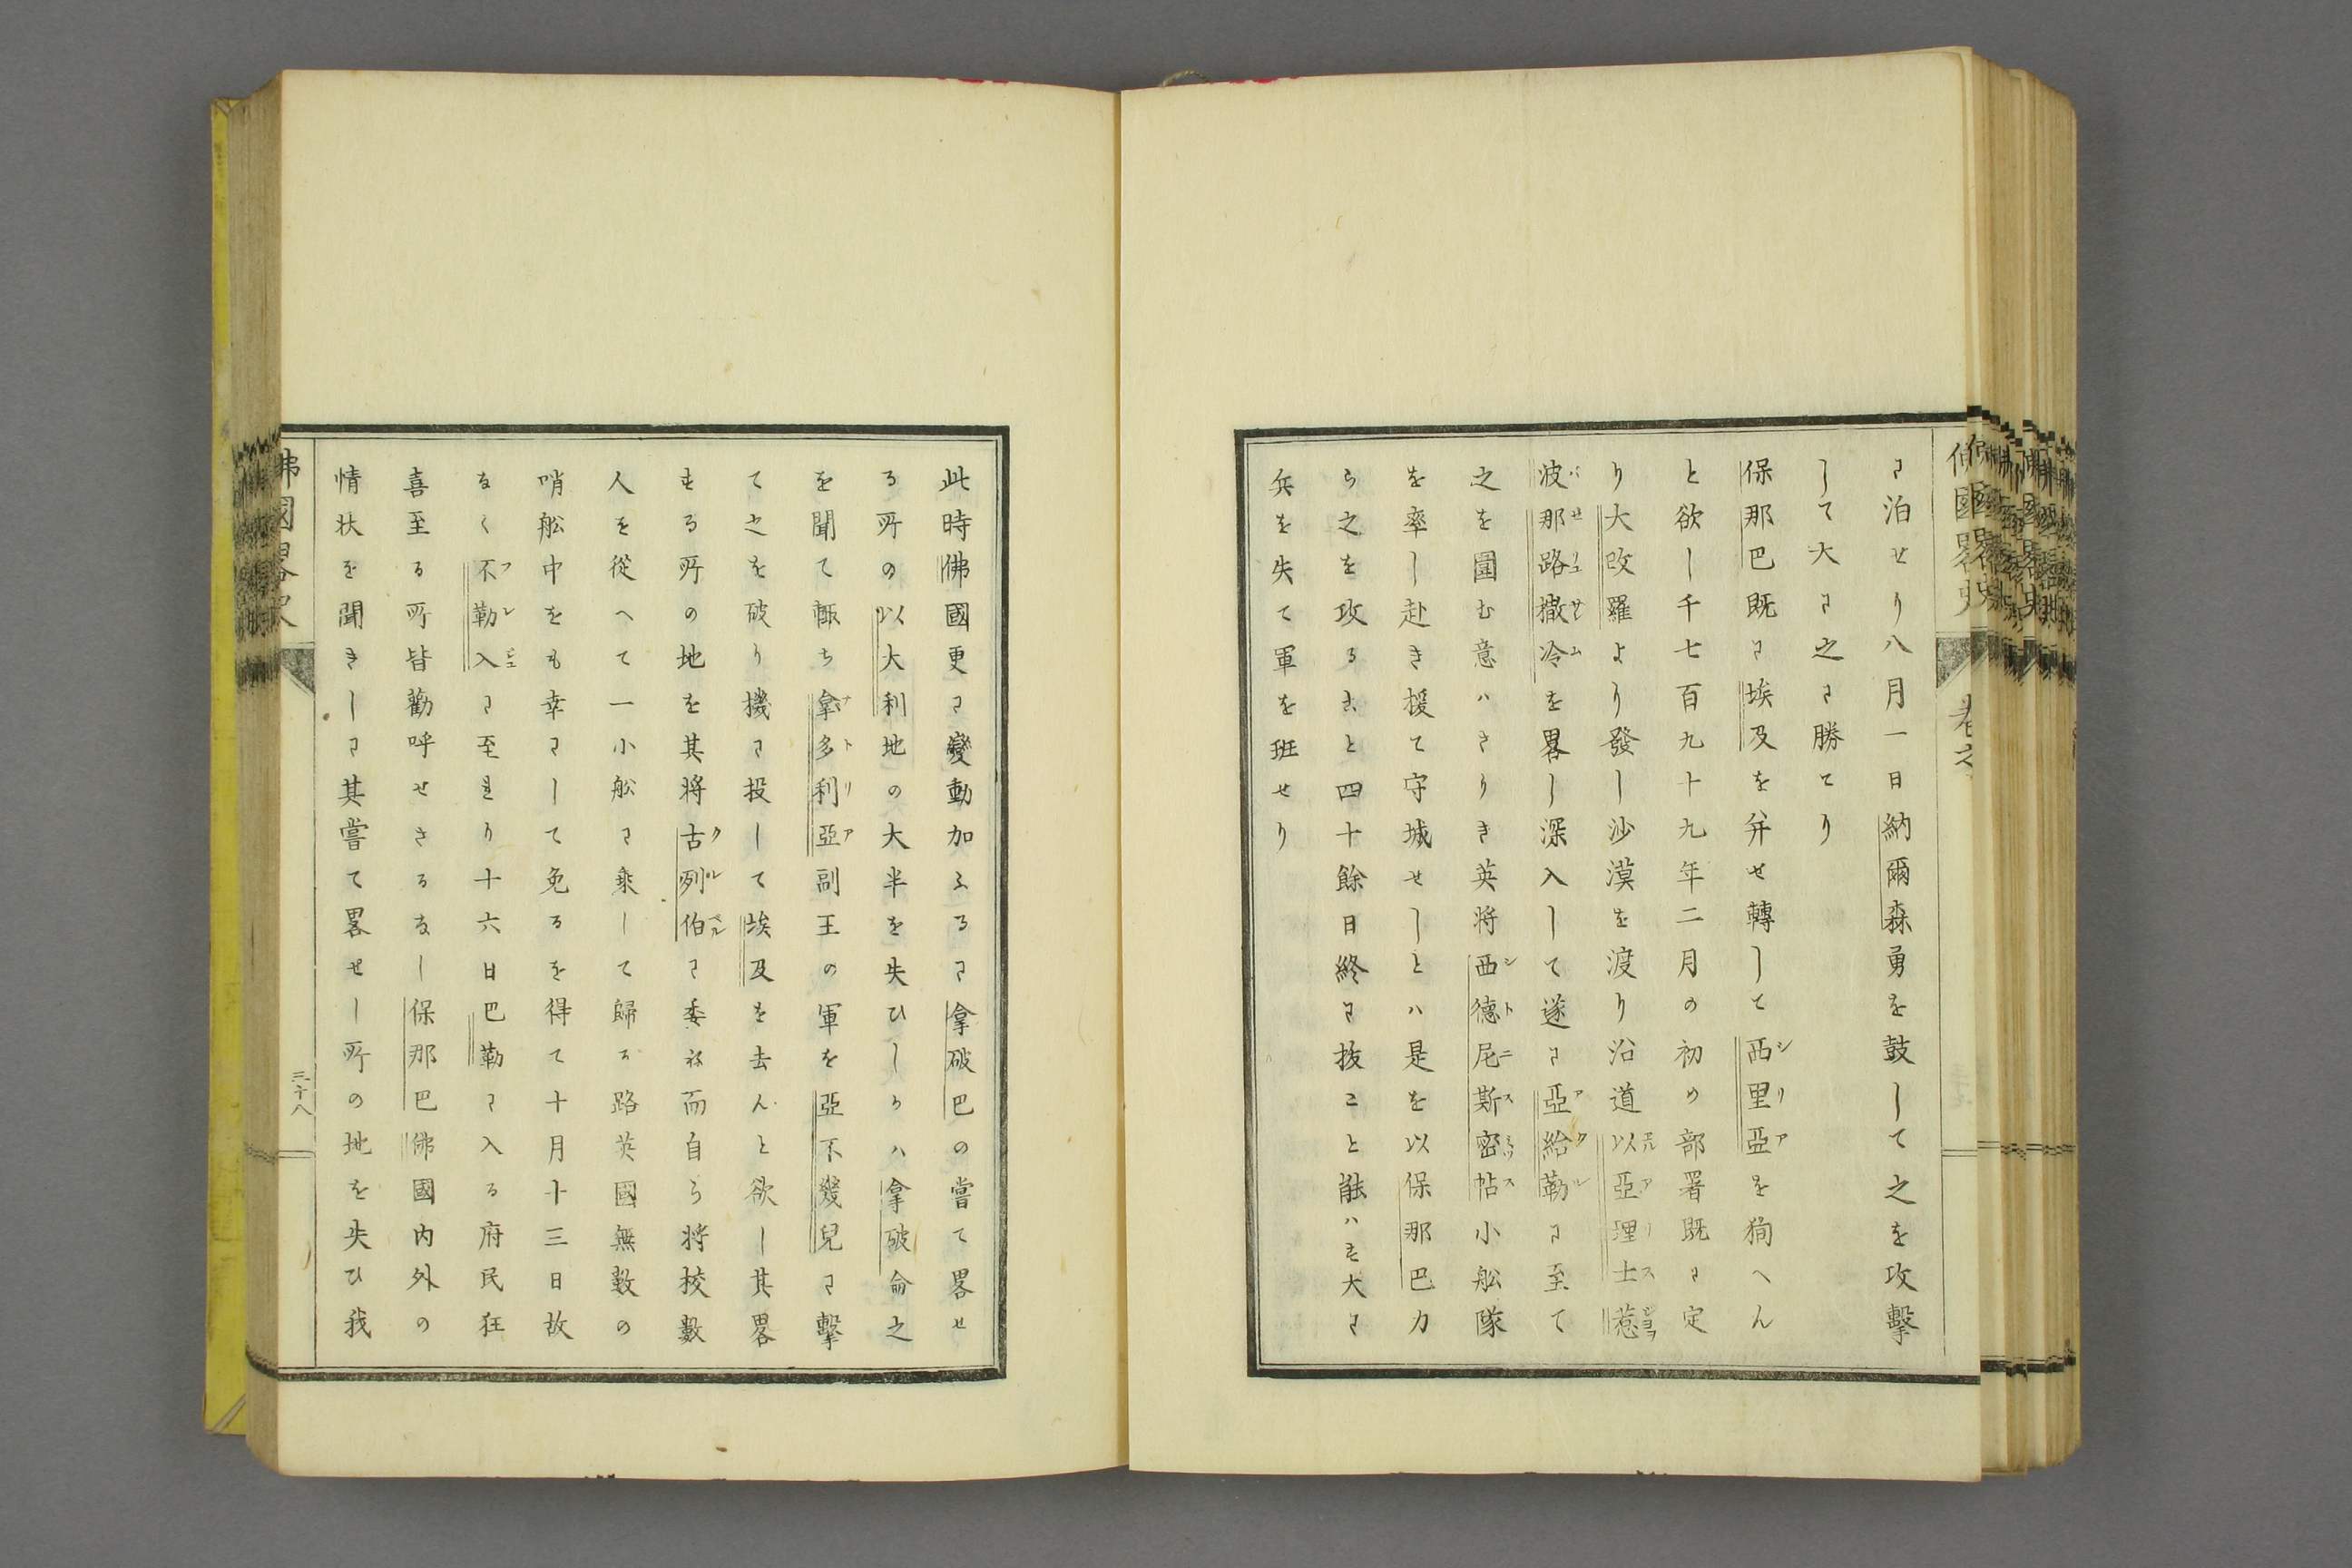 に泊せり八月一日納爾森勇を鼓して之を攻擊
して大に之に勝てり
保那巴既に埃及を并せ轉して西里亞を狥へん
と欲し千七百九十九年二月の初め部署既に定
り大改羅より發し沙漠を渡り沿道以亞理士惹
波那路撒冷を畧し深入して遂に亞給勒に至て
之を圍む意ハさりき英將西德尼斯密帖小舩隊
を率し赴き援て守城せしとハ是を以保那巴力
ら之を攻るまと四十餘日終に拔こと能ハす大に
兵を失て軍を班せり
佛國畧史
三十八
此時佛國更に變動加ふるに拿破巴の嘗て畧せ
る所の以大利地の大半を失ひしかハ拿破侖之
を聞て輙ち拿多利亞副王の軍を亞不幾兒に擊
て之を破り機に投して埃及を去んと欲し其畧
する所の地を其將古列伯に委ね而自ら將校數
人を從へて一小舩に乘して歸る路英國無數の
哨舩中をも幸にして免るを得て十月十三日故
なく不勒入に至れり十六日巴勒に入る府民狂
喜至る所皆勸呼せさるなし保那巴佛國內外の
情狀を聞きしに其嘗て畧せし所の地を失ひ我